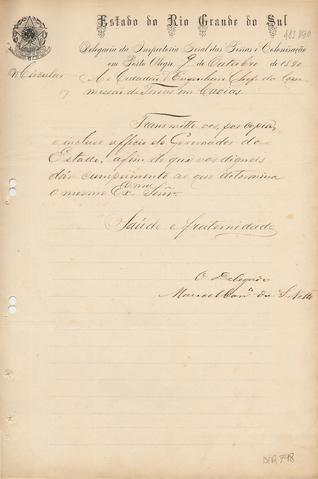 Estado do Rio Grande do Sul
Delegacia da Inspectoria Geral das Terras e Colonisação
em Porto Alegre, 9 de Outubro de 1890.
Nº Circular
Ao Cidadão Engenheiro Chefe da Com-
missão de Terras em Caxias
Transmitto vos, por copia,
o incluso officio do Governador do
Estado, afim de que vos digneis
dár cumprimento ao que determina
o mesmo Exmo Senr.
Saúde e fraternidade
O Delegado
Manoel da S. Netto